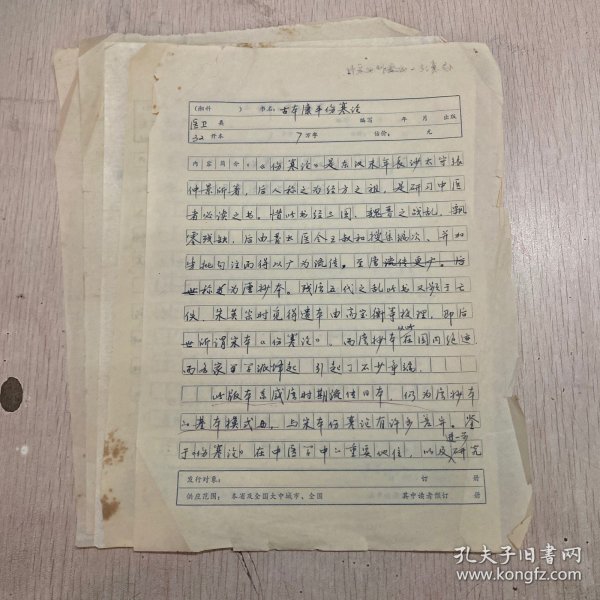 (湘科　　) 书名：古本康平伤寒论
医卫 类　　编写　　年　月　出版
32 开本　　7 万字　　估价：　　元
内容简介：《伤寒论》是东汉末年长沙太守张
仲景所著，后人称之为经方之祖，是研习中医
者必读之书。惜此书经三国、魏晋之战乱，飘
零残缺，后由晋太医令王叔和搜集编次、并加
批句注而得以广为流传。至唐流传更广。后
世称为唐抄本。残唐五代之乱此书又频于亡
佚，宋英宗时觅得遗本由高宗衡等校理，即后
世所谓宋本《伤寒论》，而唐抄本在国内绝迹
而各家学派蜂起，引起了不少争论。
此版本系盛唐时期流传日本，仍为唐抄本
基本模式，与宋本伤寒论有许多差异。鉴
于《伤寒论》在中医学中重要地位，以及进一步研究
发行对象：　　订　　册
供应范围：本省及全国大中城市、全国　　其中读者预订　　册
孔夫子旧书网
www.kongfz.com